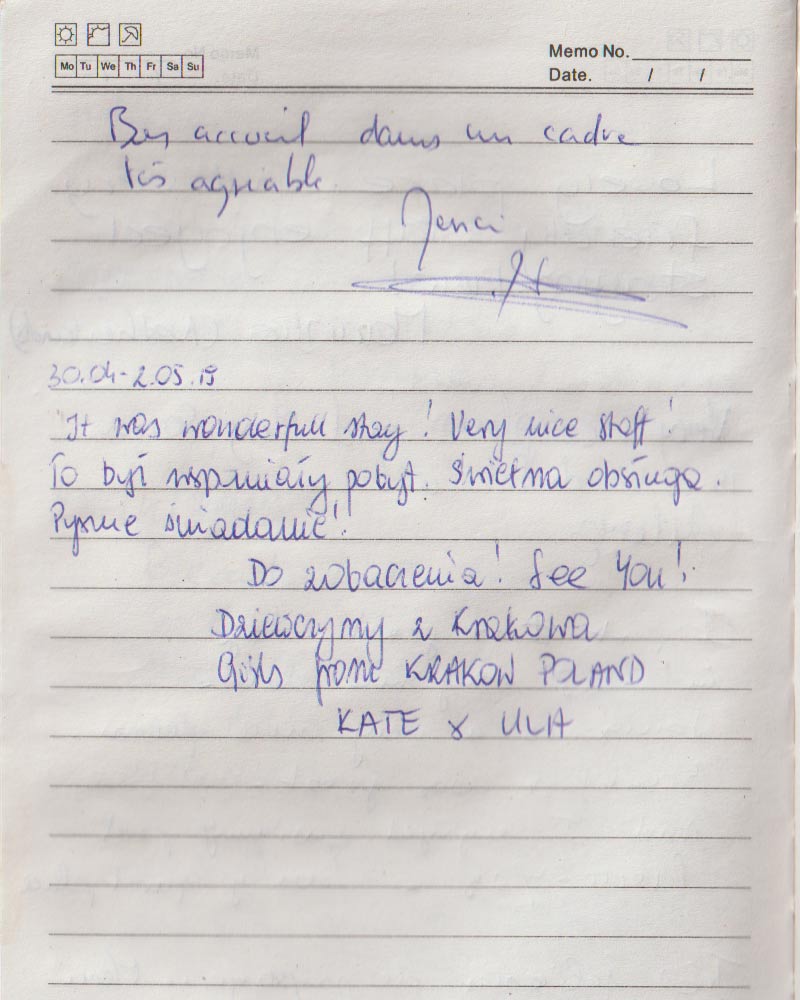 Mo Tu We Th Fr Sa Su
Memo No.
Date. / /
Bon accueil dans un cadre
très agréable.
Merci
30.04-2.05.19
It was wonderfull stay! Very nice staff!
To był wspaniały pobyt. Świetna obsługa.
Pyszne śniadanie!
Do zobaczenia! See You!
Dziewczyny z Krakowa
Girls from KRAKOW POLAND
KATE & ULA